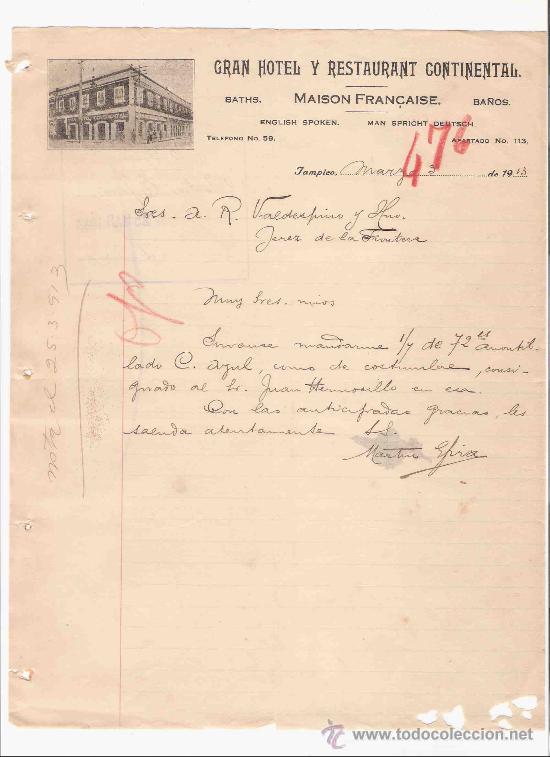 GRAN HOTEL Y RESTAURANT CONTINENTAL.
BATHS. MAISON FRANÇAISE. BAÑOS.
ENGLISH SPOKEN. MAN SPRICHT DEUTSCH
TELEFONO NO. 59. APARTADO NO. 113.
476
Tampico, Marzo 3 de 1913
Sres. A. R. Valdespino y Hno.
Jerez de la Frontera
Muy Sres. mios
mandarme 1/7 de 72
C. Azul, como de costumbre, consi-
gnado al Sr. Juan Hermosillo en esa.
Con las anticipadas gracias, les
saluda atentamente S.S.
Martin
nota el 25 3 913
todocoleccion
www.todocoleccion.net